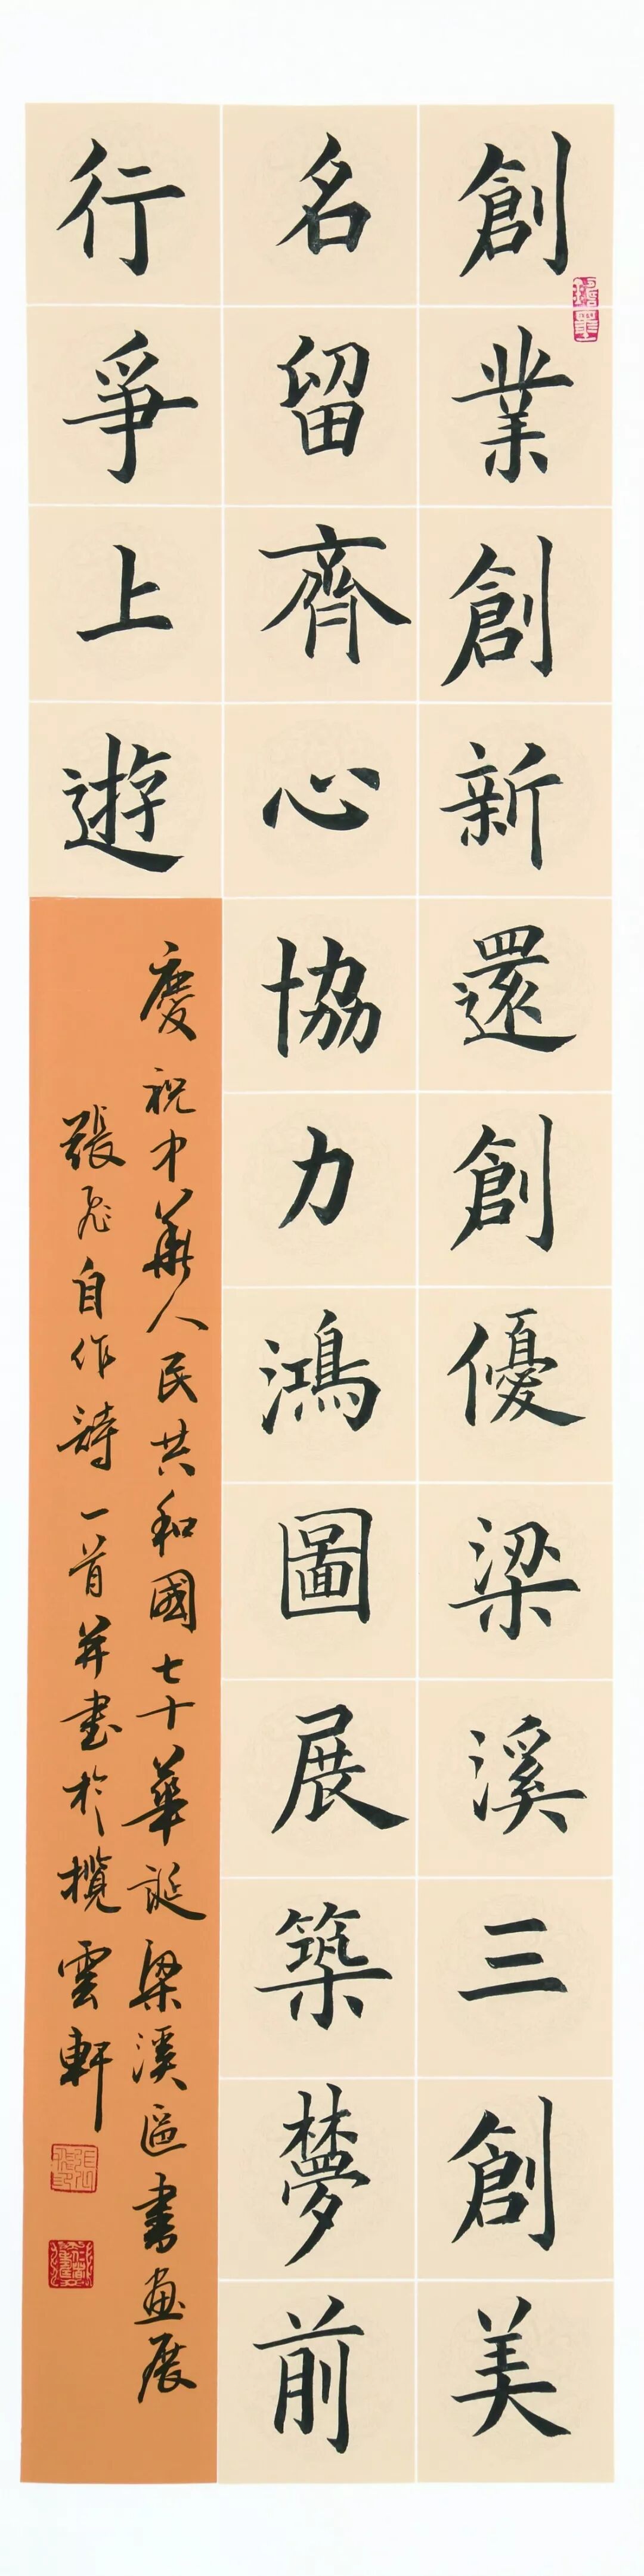 創業創新還創優梁溪三創美
名留齊心協力鴻圖展築夢前
行爭上遊
慶祝中華人民共和國七十華誕梁溪區書畫展
張飛自作詩一首並書於攬雲軒